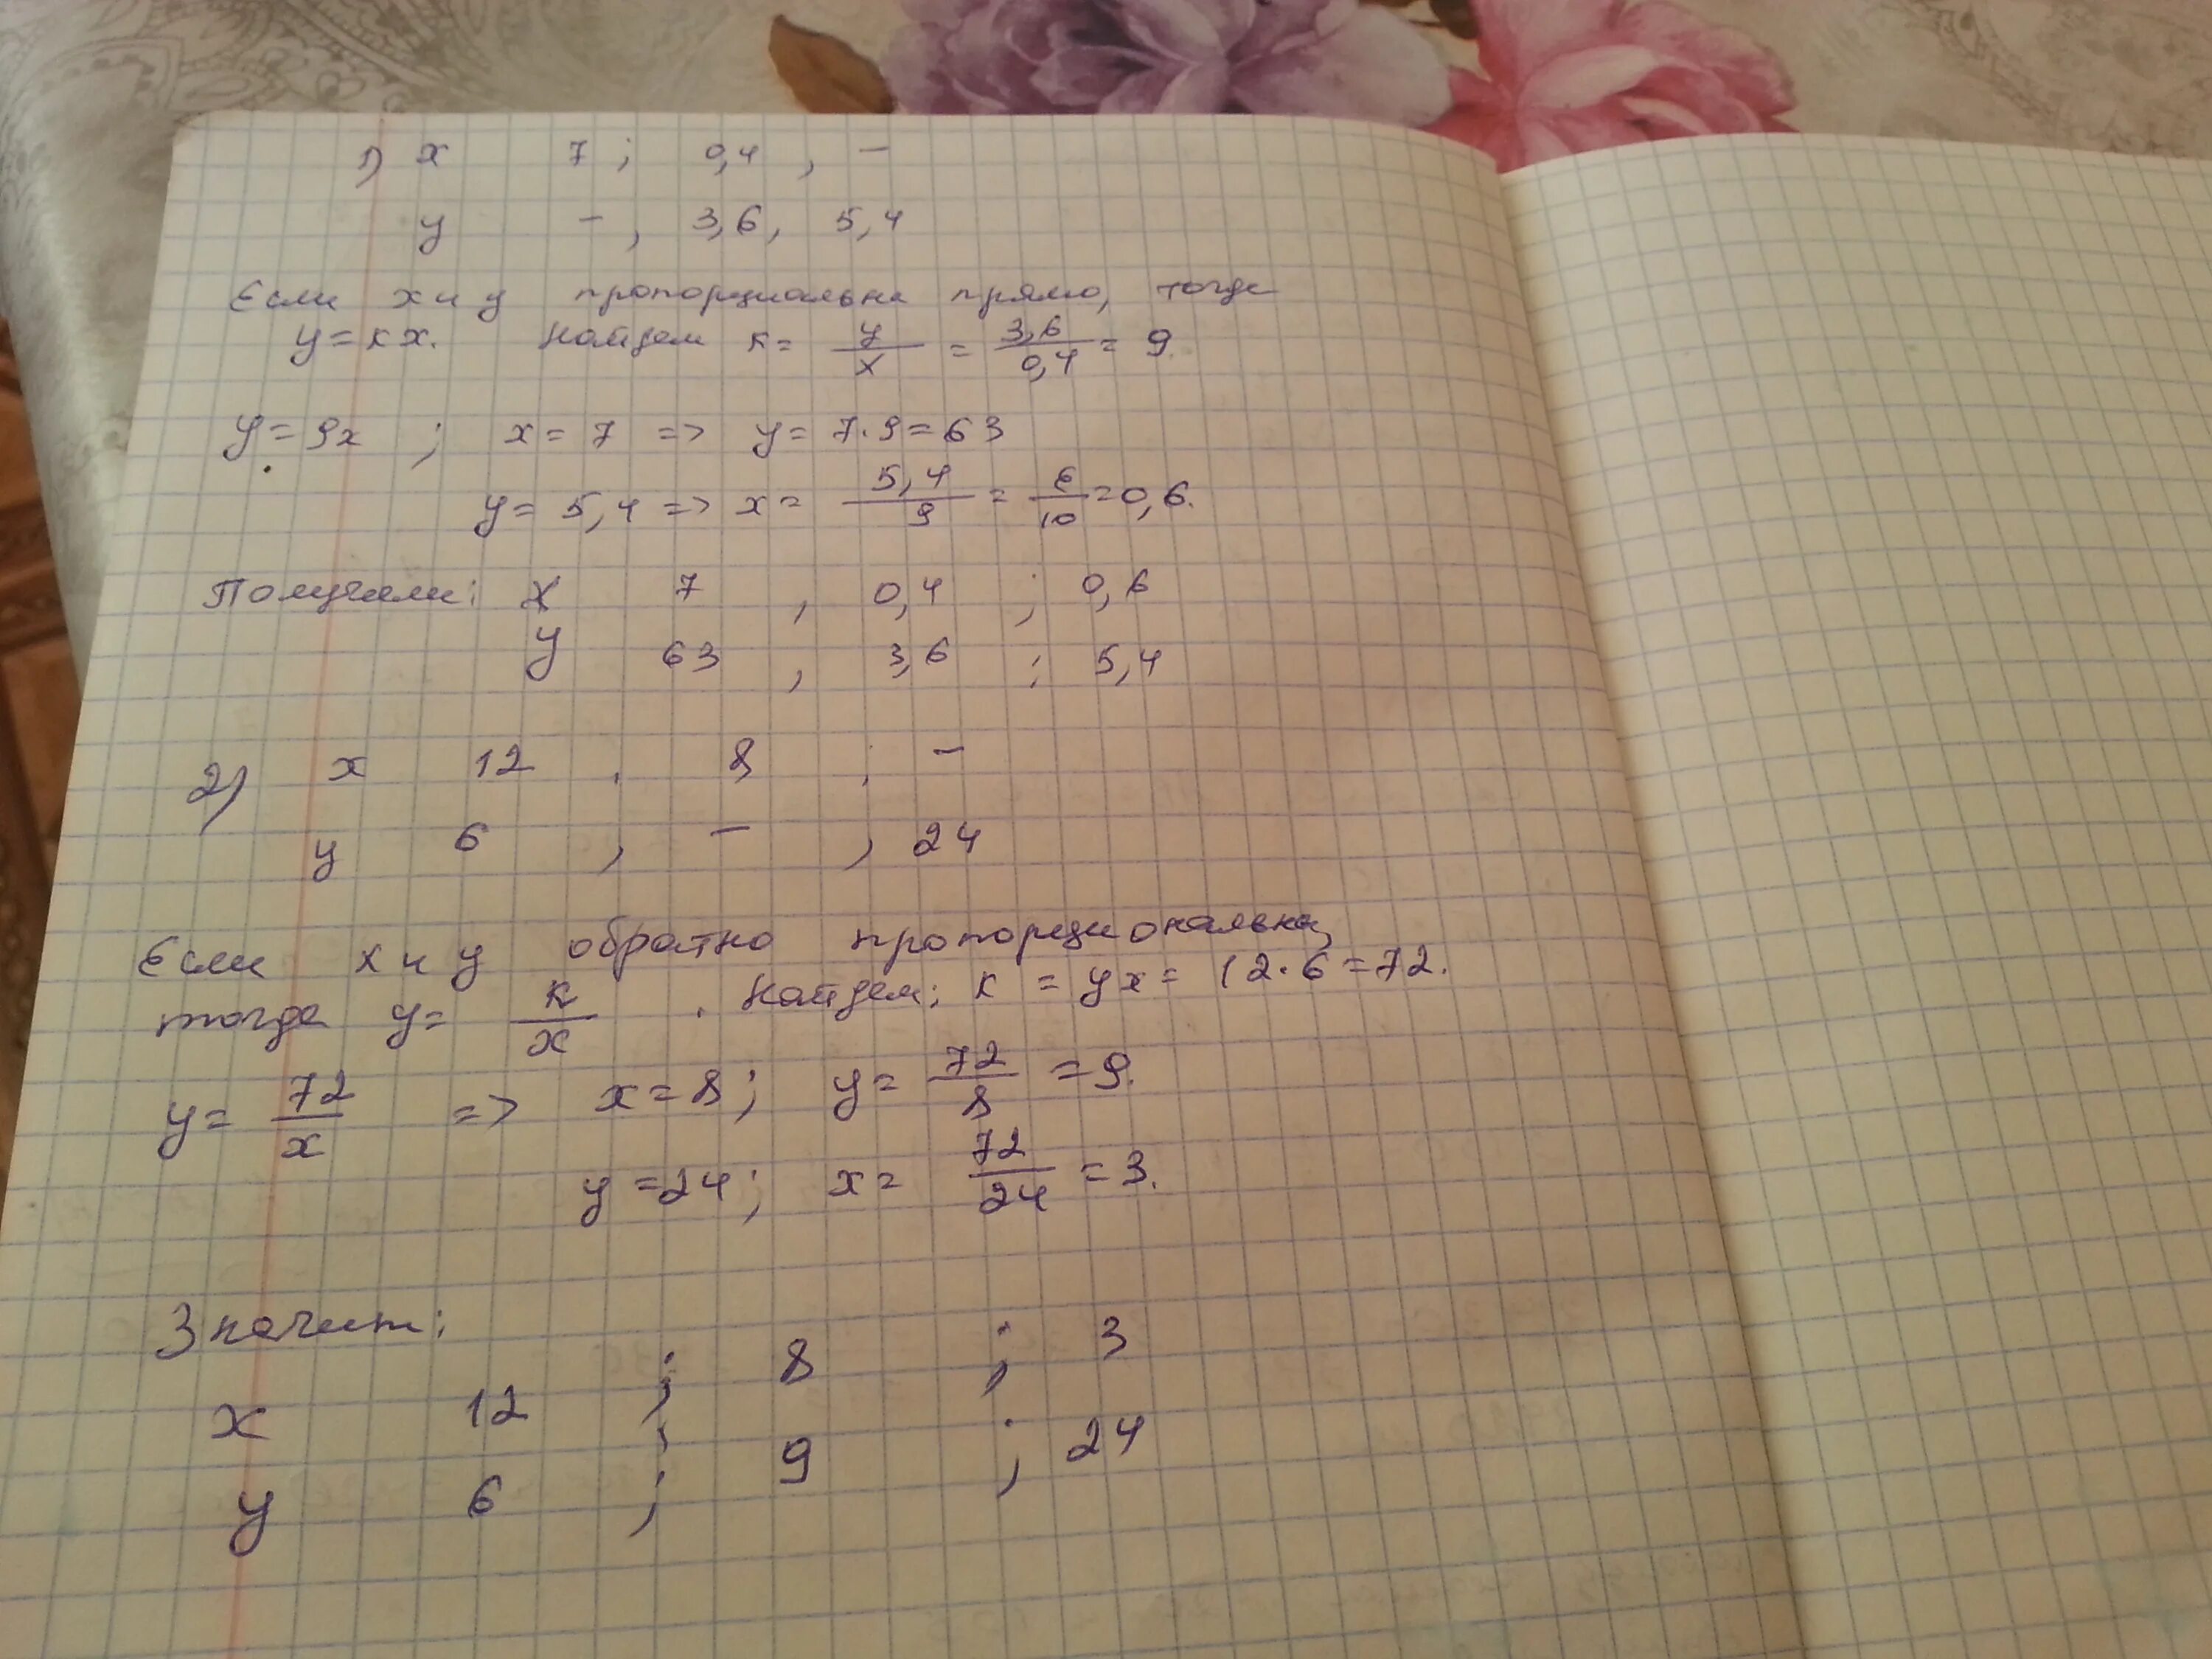 1) x 7 ; 0,4 , —
y — , 3,6 , 5,4
Если x и y пропорциальна прямо, тогда
y = кx. Найдем к = y/x = 3,6/0,4 = 9.
y = 9x ; x = 7 => y = 7·9 = 63
y = 5,4 => x = 5,4/9 = 6/10 = 0,6.
Получили: x 7 , 0,4 ; 0,6
y 63 , 3,6 ; 5,4
2) x 12 , 8 ; —
y 6 , — , 24
Если x и y обратно пропорциональна,
тогда y = к/x . Найдем: к = yx = 12·6 = 72.
y = 72/x => x = 8 ; y = 72/8 = 9.
y = 24 ; x = 72/24 = 3.
Значит:
x 12 ; 8 ; 3
y 6 ; 9 ; 24